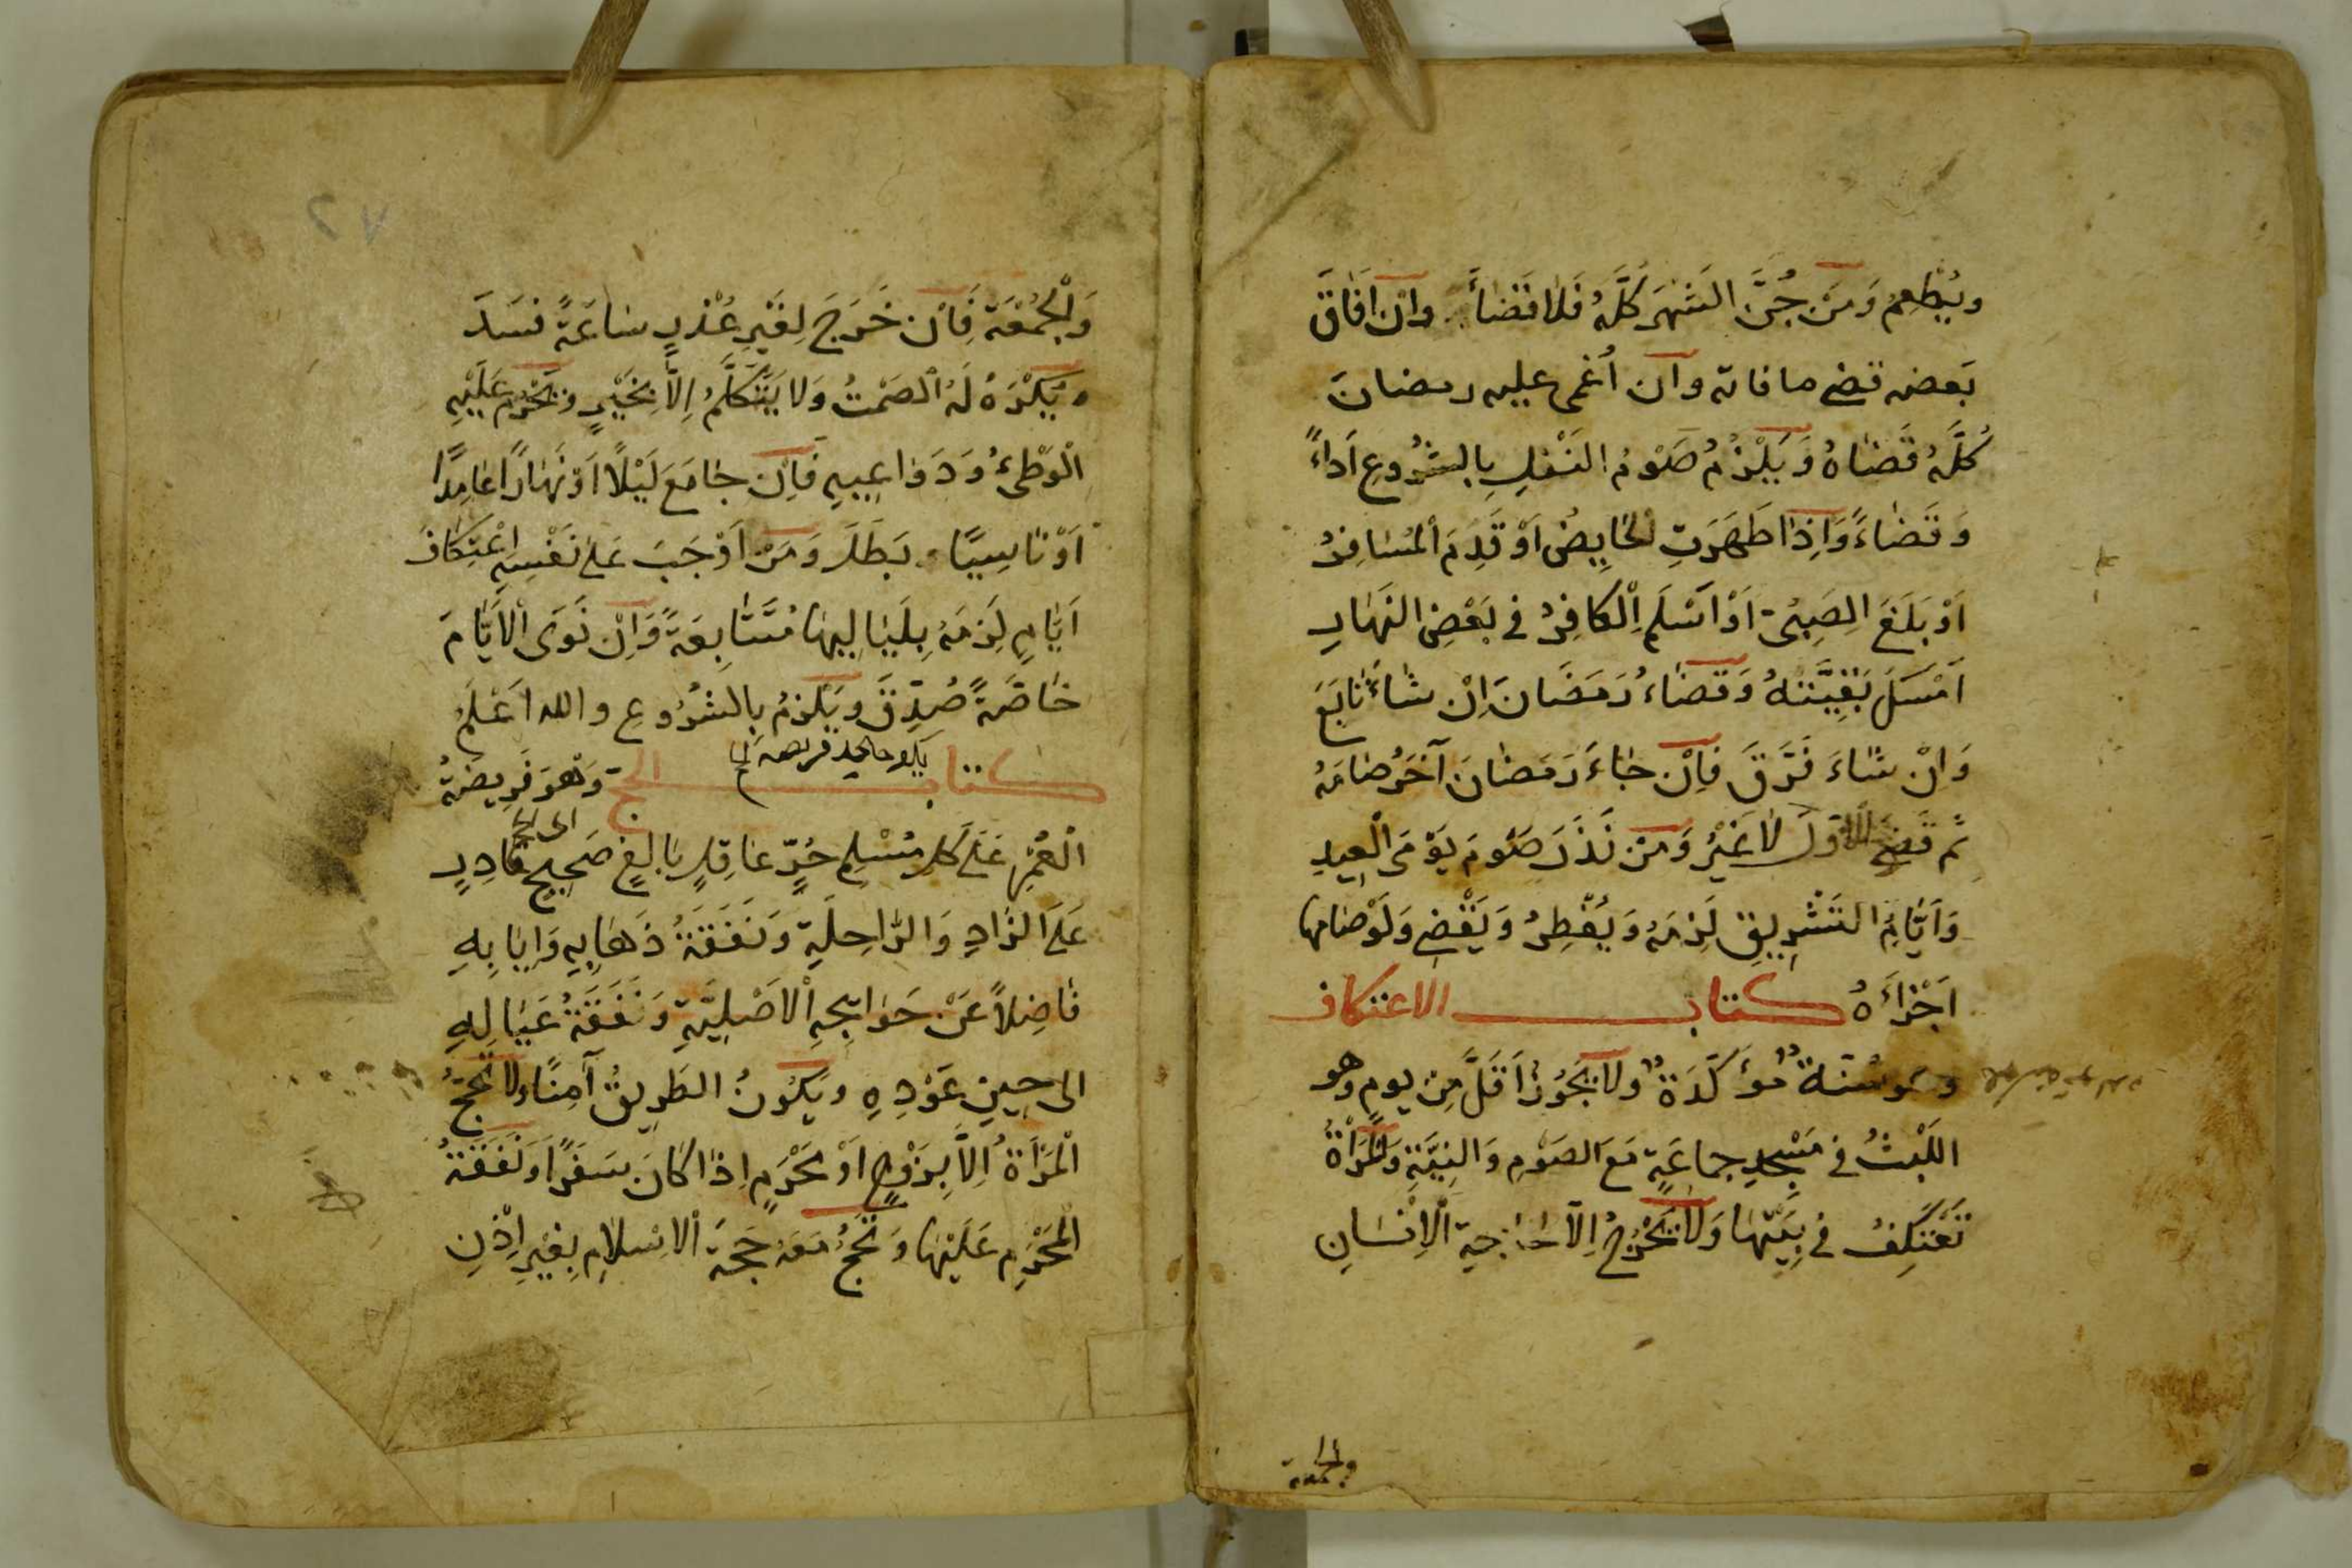 ويُطْعِمُ وَمَنْ جُنَّ الشَهرَ كُلَّهُ فَلَا قَضَاءَ وَاِنْ اَفَاقَ
بَعضه قضى ما فاته وان اُغمى عليه رمضان
كُلَّهُ قَضَاهُ وَيَلْزَمُ صَوْمُ النَفْلِ بِالشُرُوعِ اَدَاءً
وَقَضَاءً وَاِذَا طَهَرَتِ الحَايِضُ اَوْ قَدِمَ الْمُسَافِرُ
اَوْ بَلَغَ الصَبِىُّ اَوْ اَسْلَمَ الْكَافِرُ فى بَعْضِ النَهَارِ
اَمْسَكَ بَقِيَّتَهُ وَقَضَاءُ رَمَضَانَ اِنْ شَاءَ تَابَعَ
وَاِنْ شَاءَ فَرَّقَ فَاِنْ جَاءَ رَمَضَانَ آخَرُ صَامَهُ
ثم قَضَى الاَوّلَ لا غَيْرُ وَمَنْ نَذَرَ صَوْمَ يَوْمَىِ الْعِيدِ
وَاَيَّامِ التَشْرِيقِ لَزِمَهُ وَيُفْطِرُ وَيَقْضِى وَلَوْ صَامها
اَجْزَاَهُ كتاب الاعتكاف
وهو سُنَةٌ مُؤَكَّدَةٌ ولا يَجُوزُ اَقَلَّ مِنْ يوم وهو
اللَبْثُ فى مَسْجِدِ جماعَةٍ مَعَ الصَوْمِ وَالنِيَّةِ وَالْمَرْاَةُ
تَعْتَكِفُ فى بَيْتِهَا وَلَا تَخْرُجُ اِلّا لحَاجَةِ الْاِنْسَانِ
والجمعة
وَالْجُمُعَة فَاِنْ خَرَجَ لِغَيْرِ عُذْرٍ سَاعَةً فَسَدَ
وَيُكْرَهُ لَهُ الصَمْتُ وَلا يَتَكَلَّمُ اِلَّا بِخَيْرٍ وَيَحْرُمُ عَلَيْهِ
الْوَطْىءُ وَدَوَاعِيهِ فَاِنْ جَامَعَ لَيْلاً اَوْ نَهَارًا عَامِدًا
اَوْ نَاسِيًا بَطَلَ وَمَنْ اَوْجَبَ عَلى نَفْسِهِ اعْتِكَافَ
اَيَّامٍ لَزِمَهُ بِلَيَالِيهَا مُتَتَابِعَةً وَاِنْ نَوَى الْاَيَّامَ
خَاصَّةً صُدِّقَ وَيَلْزَمُ بِالشُرُوعِ والله اَعْلَمُ
كتاب الحج وَهُوَ فَرِيضَةُ
الْعُمْرِ عَلَى كل مُسْلِمٍ حُرٍّ عَاقِلٍ بَالِغٍ صَحِيحٍ قَادِرٍ
عَلَى الزَادِ وَالرَّاحِلَةِ وَنَفَقَةُ ذَهَابِهِ وَاِيَابِهِ
فَاضِلاً عَنْ حَوَايِجِهِ الْاَصْلِيَّةِ وَنَفَقَةُ عَيَالِهِ
الى حِينِ عَوْدِهِ وَيَكُونُ الطَرِيقُ آمِنًا وَلا تَحُجُّ
الْمَرْاَةُ اِلاَّ بِزَوْجٍ اَوْ مَحْرَمٍ اِذَا كَانَ سَفَرًا وَنَفَقَةُ
الْمَحْرَمِ عَلَيْهَا وَتَحُجُّ مَعَهُ حَجَةَ الْاِسْلَامِ بِغَيْرِ اِذْنِ